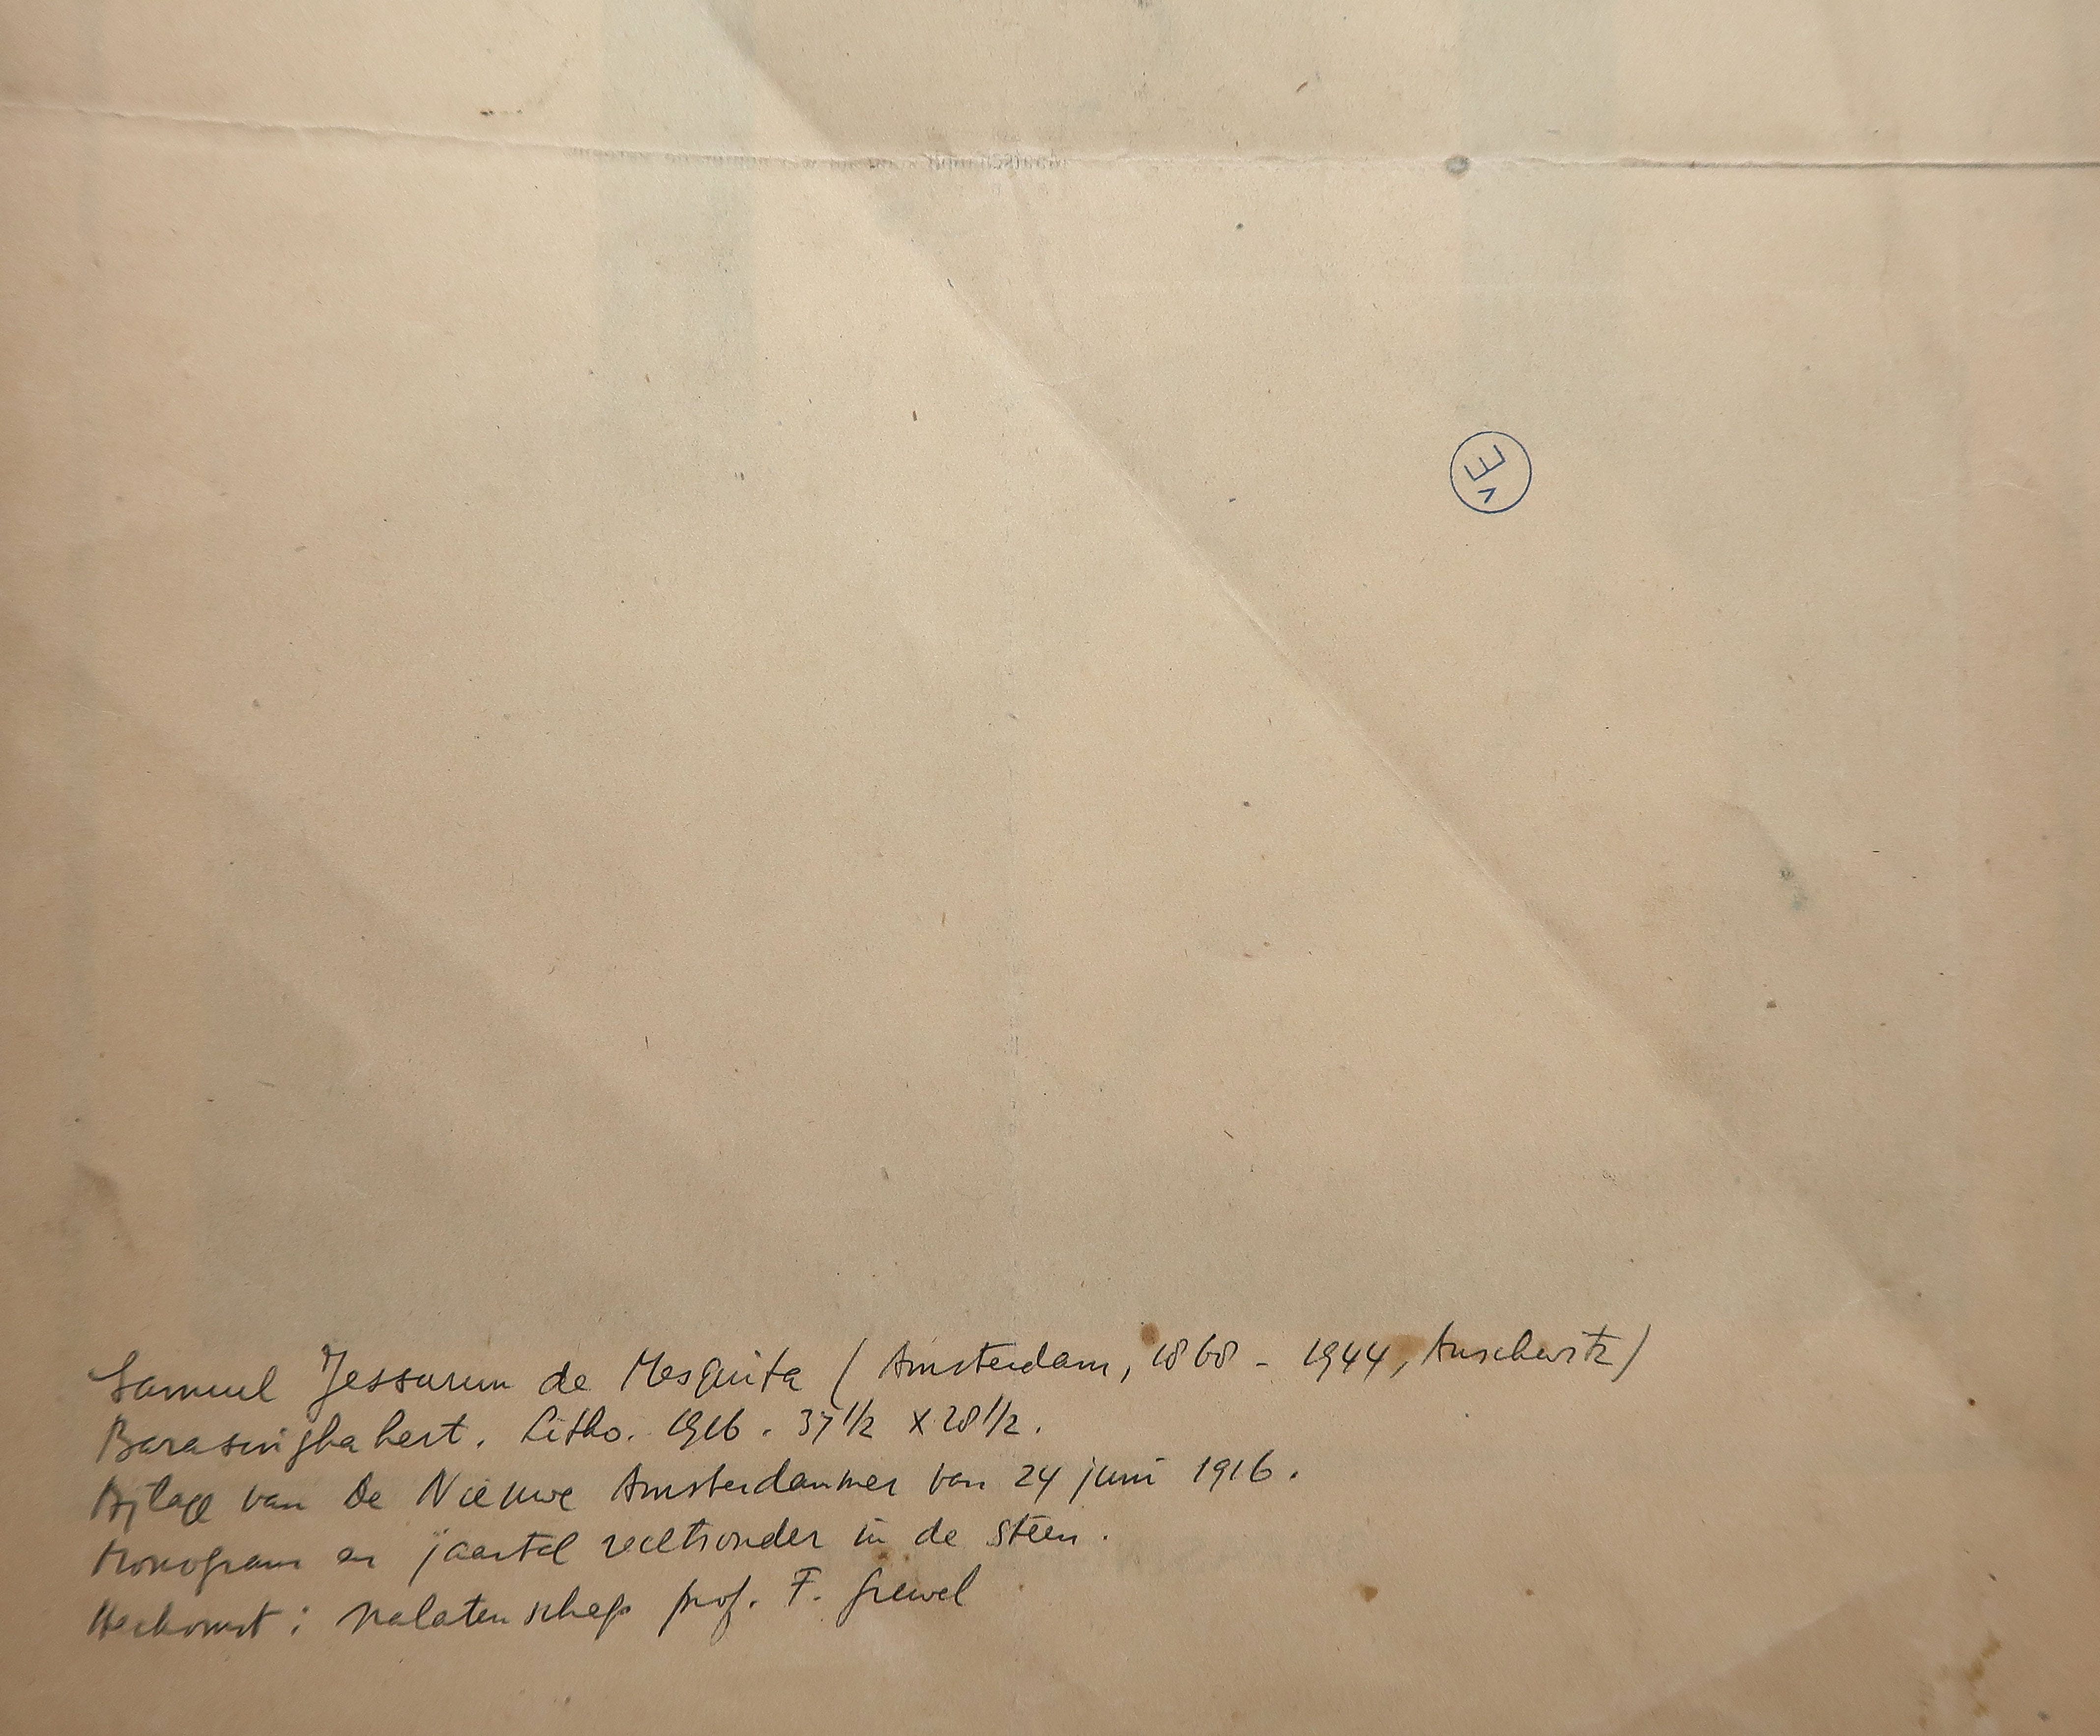 Maatschappij
VE
Samuel Jessurun de Mesquita (Amsterdam, 1868 - 1944, Auschwitz)
Barasinghahert. Litho. 1916. 37 1/2 x 28 1/2.
Bijlage van De Nieuwe Amsterdammer van 24 juni 1916.
Monogram en jaartal rechtsonder in de steen.
Herkomst: nalatenschap prof. F. Grewel